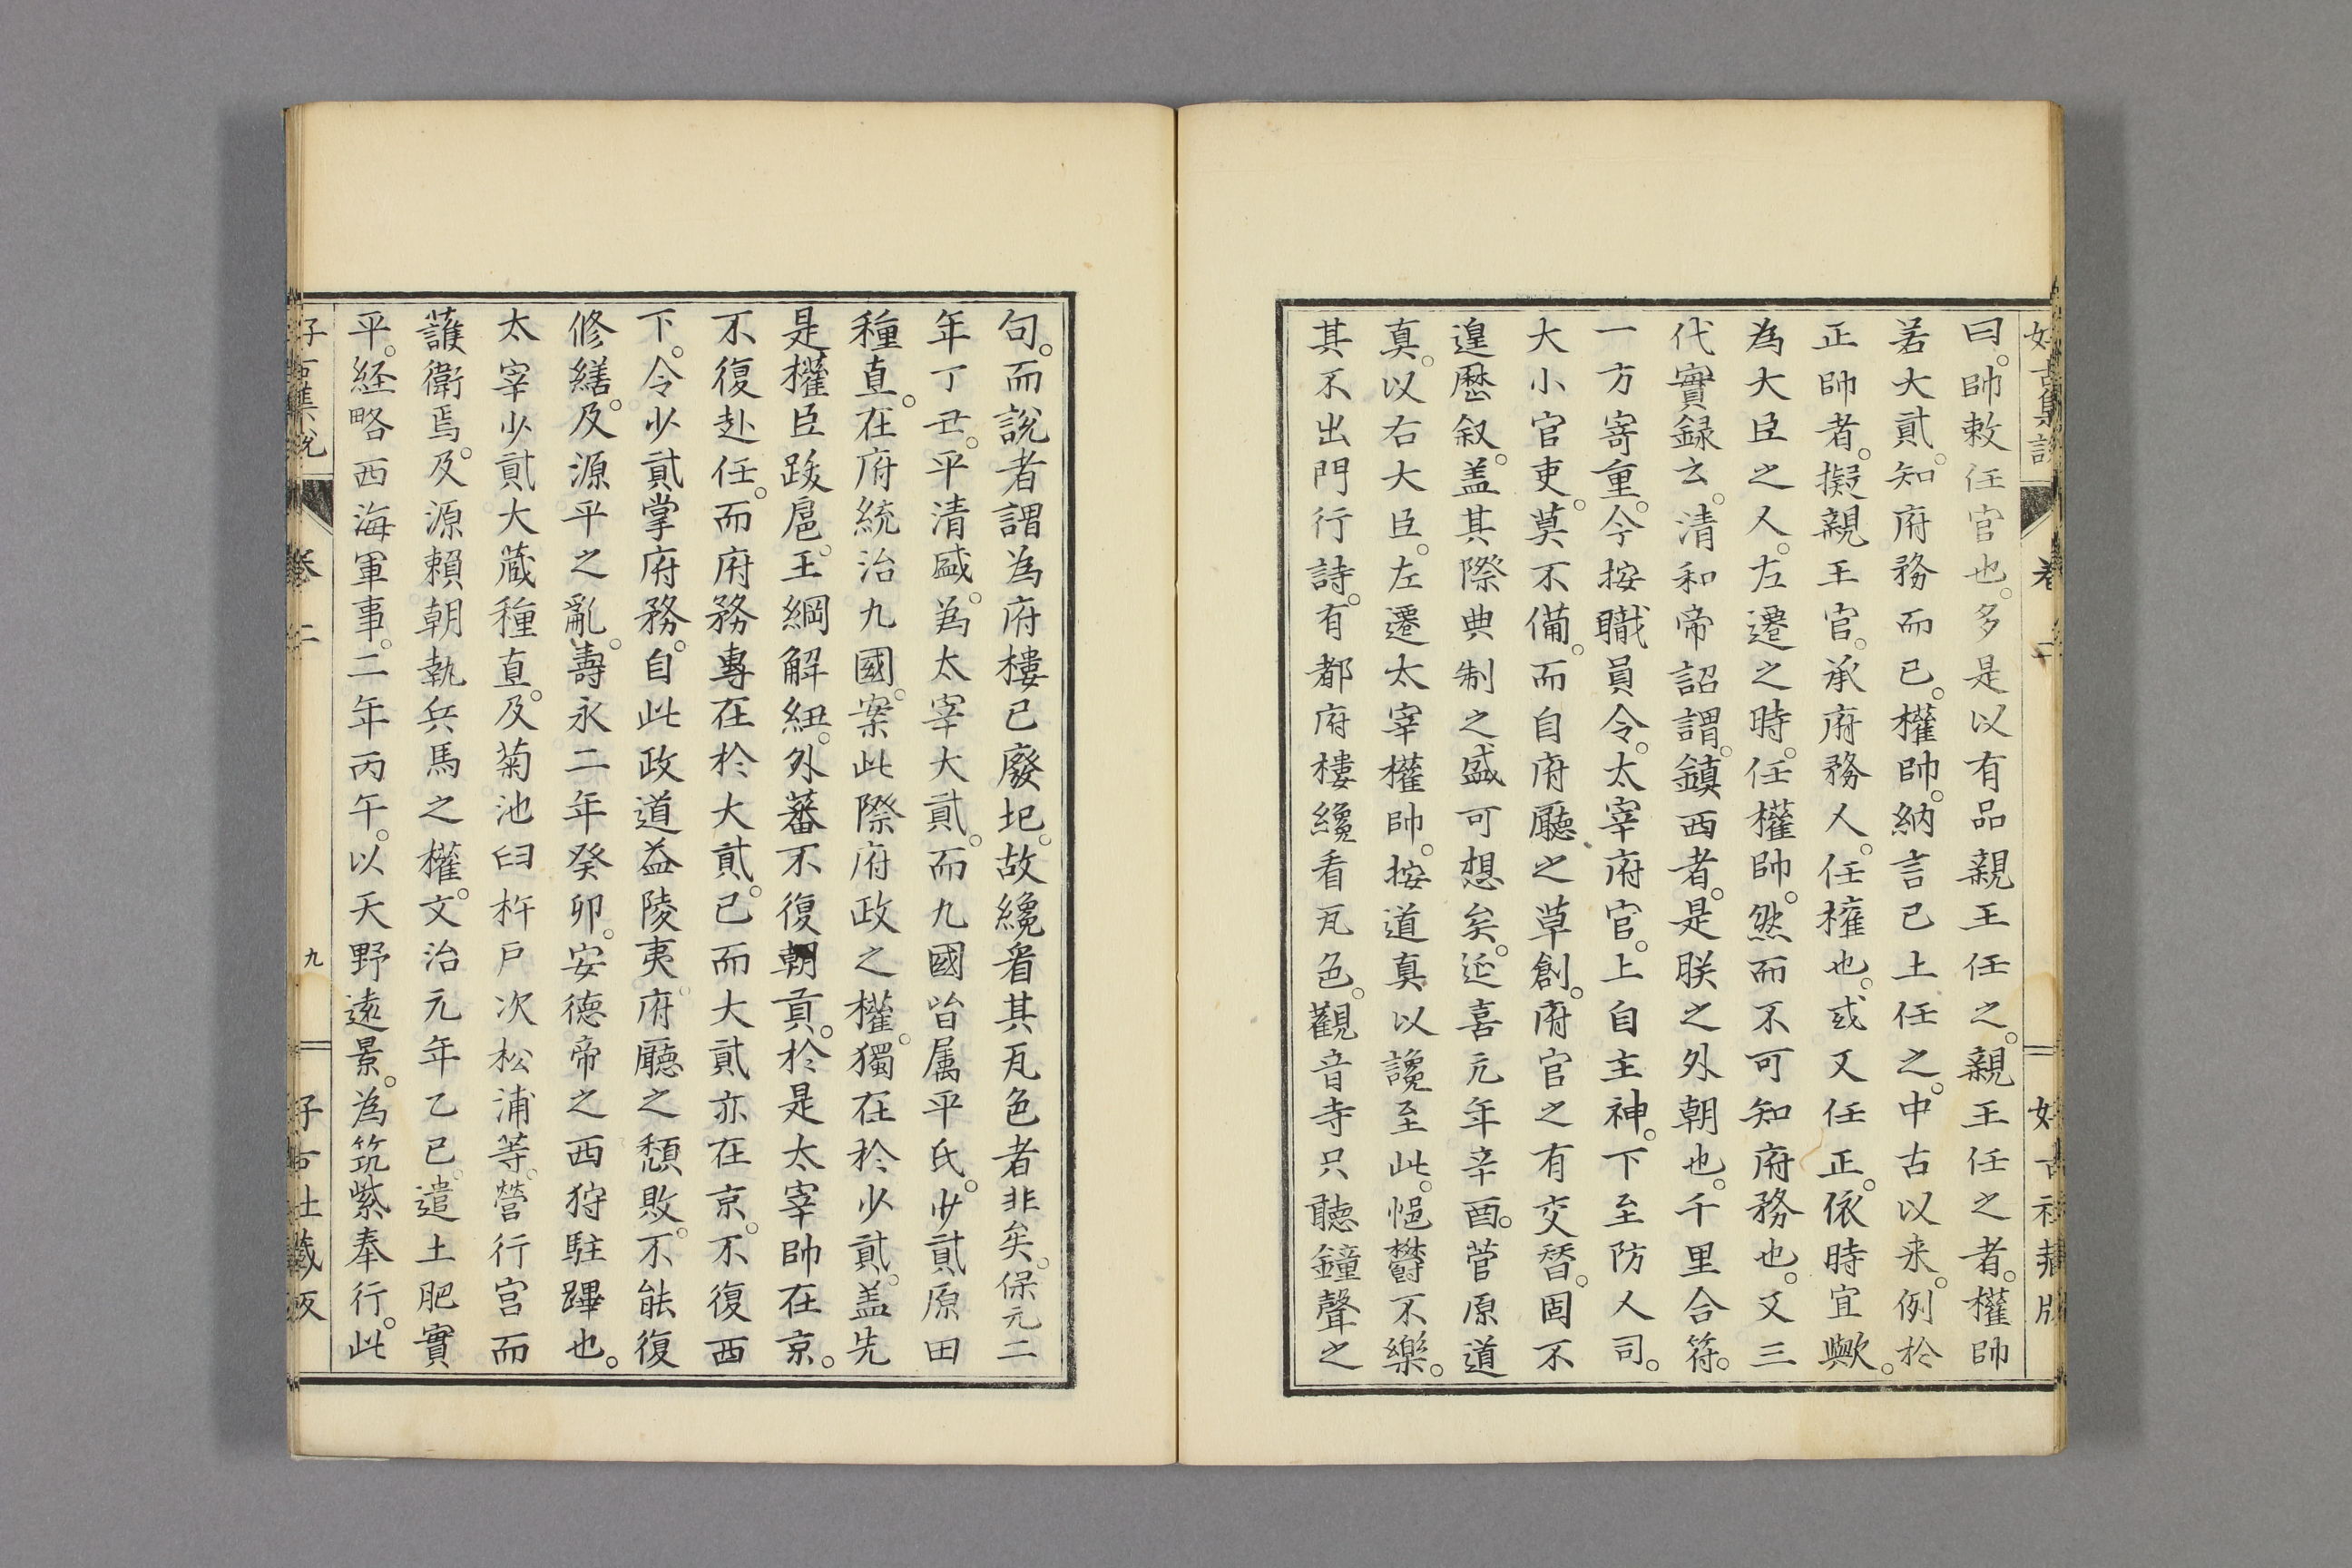 好古集説 卷二 好古社藏版
曰。帥敕任官也。多是以有品親王任之。親王任之者。權帥
若大貳。知府務而已。權帥。納言已上任之。中古以来。例於
正帥者。擬親王官。承府務人。任權也。或又任正。依時宜歟。
為大臣之人。左遷之時。任權帥。然而不可知府務也。又三
代實録云。清和帝詔謂。鎮西者。是朕之外朝也。千里合符。
一方寄重。今按職員令。太宰府官。上自主神。下至防人司。
大小官吏。莫不備。而自府廳之草創。府官之有交替。固不
遑歷叙。盖其際典制之盛可想矣。延喜元年辛酉。菅原道
真。以右大臣。左遷太宰權帥。按道真以讒至此。悒欝不樂。
其不出門行詩。有都府樓纔看瓦色。觀音寺只聽鐘聲之
句。而説者謂為府樓已廢圯。故纔看其瓦色者非矣。保元二
年丁丑。平清盛。為太宰大貳。而九國皆属平氏。少貳原田
種直。在府統治九國。案此際府政之權。獨在於少貳。盖先
是權臣跋扈。王綱解紐。外蕃不復朝貢。於是太宰帥在京。
不復赴任。而府務專在於大貳。已而大貳亦在京。不復西
下。令少貳掌府務。自此政道益陵夷。府廳之頽敗。不能復
修繕。及源平之亂。壽永二年癸卯。安德帝之西狩駐蹕也。
太宰少貳大蔵種直。及菊池臼杵戸次松浦等。營行宮而
護衛焉。及源賴朝執兵馬之權。文治元年乙巳。遣土肥實
平。経略西海軍事。二年丙午。以天野遠景。為筑紫奉行。此
好古集説 卷二 九 好古社藏版